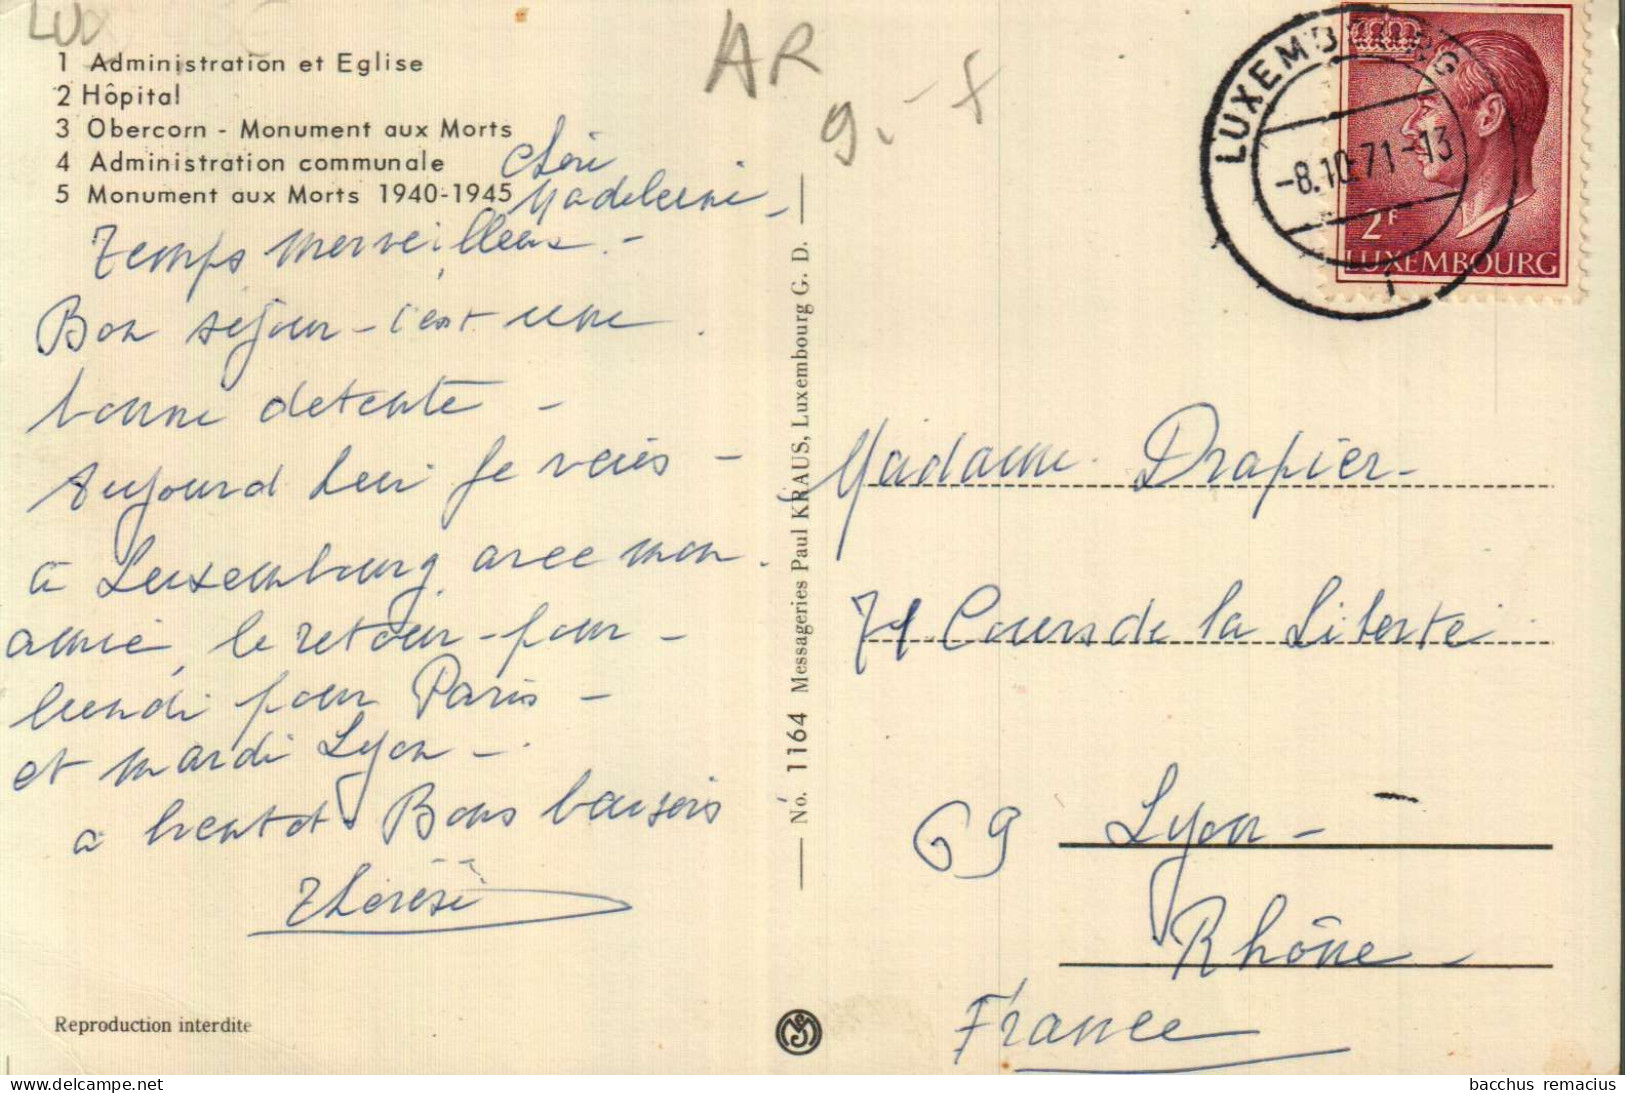 LUX
1 Administration et Eglise
2 Hôpital
3 Obercorn - Monument aux Morts
4 Administration communale
5 Monument aux Morts 1940-1945
AR
9.-f
Madeleine -
Temps merveilleux. -
Bon séjour - c'est une
bonne detente -
Aujourd hui je
à Luxembourg avec mon
amie, le retour - pour -
lundi pour Paris -
et mardi Lyon -
a bientot. Bons baisers
Thérèse
Reproduction interdite
No. 1164 Messageries Paul KRAUS, Luxembourg G. D.
LUXEMBOURG
-8.10.71-13
i
2F
LUXEMBOURG
Madame Drapier -
71 Cours de la Liberté
69 Lyon -
Rhône -
France
bacchus remacius